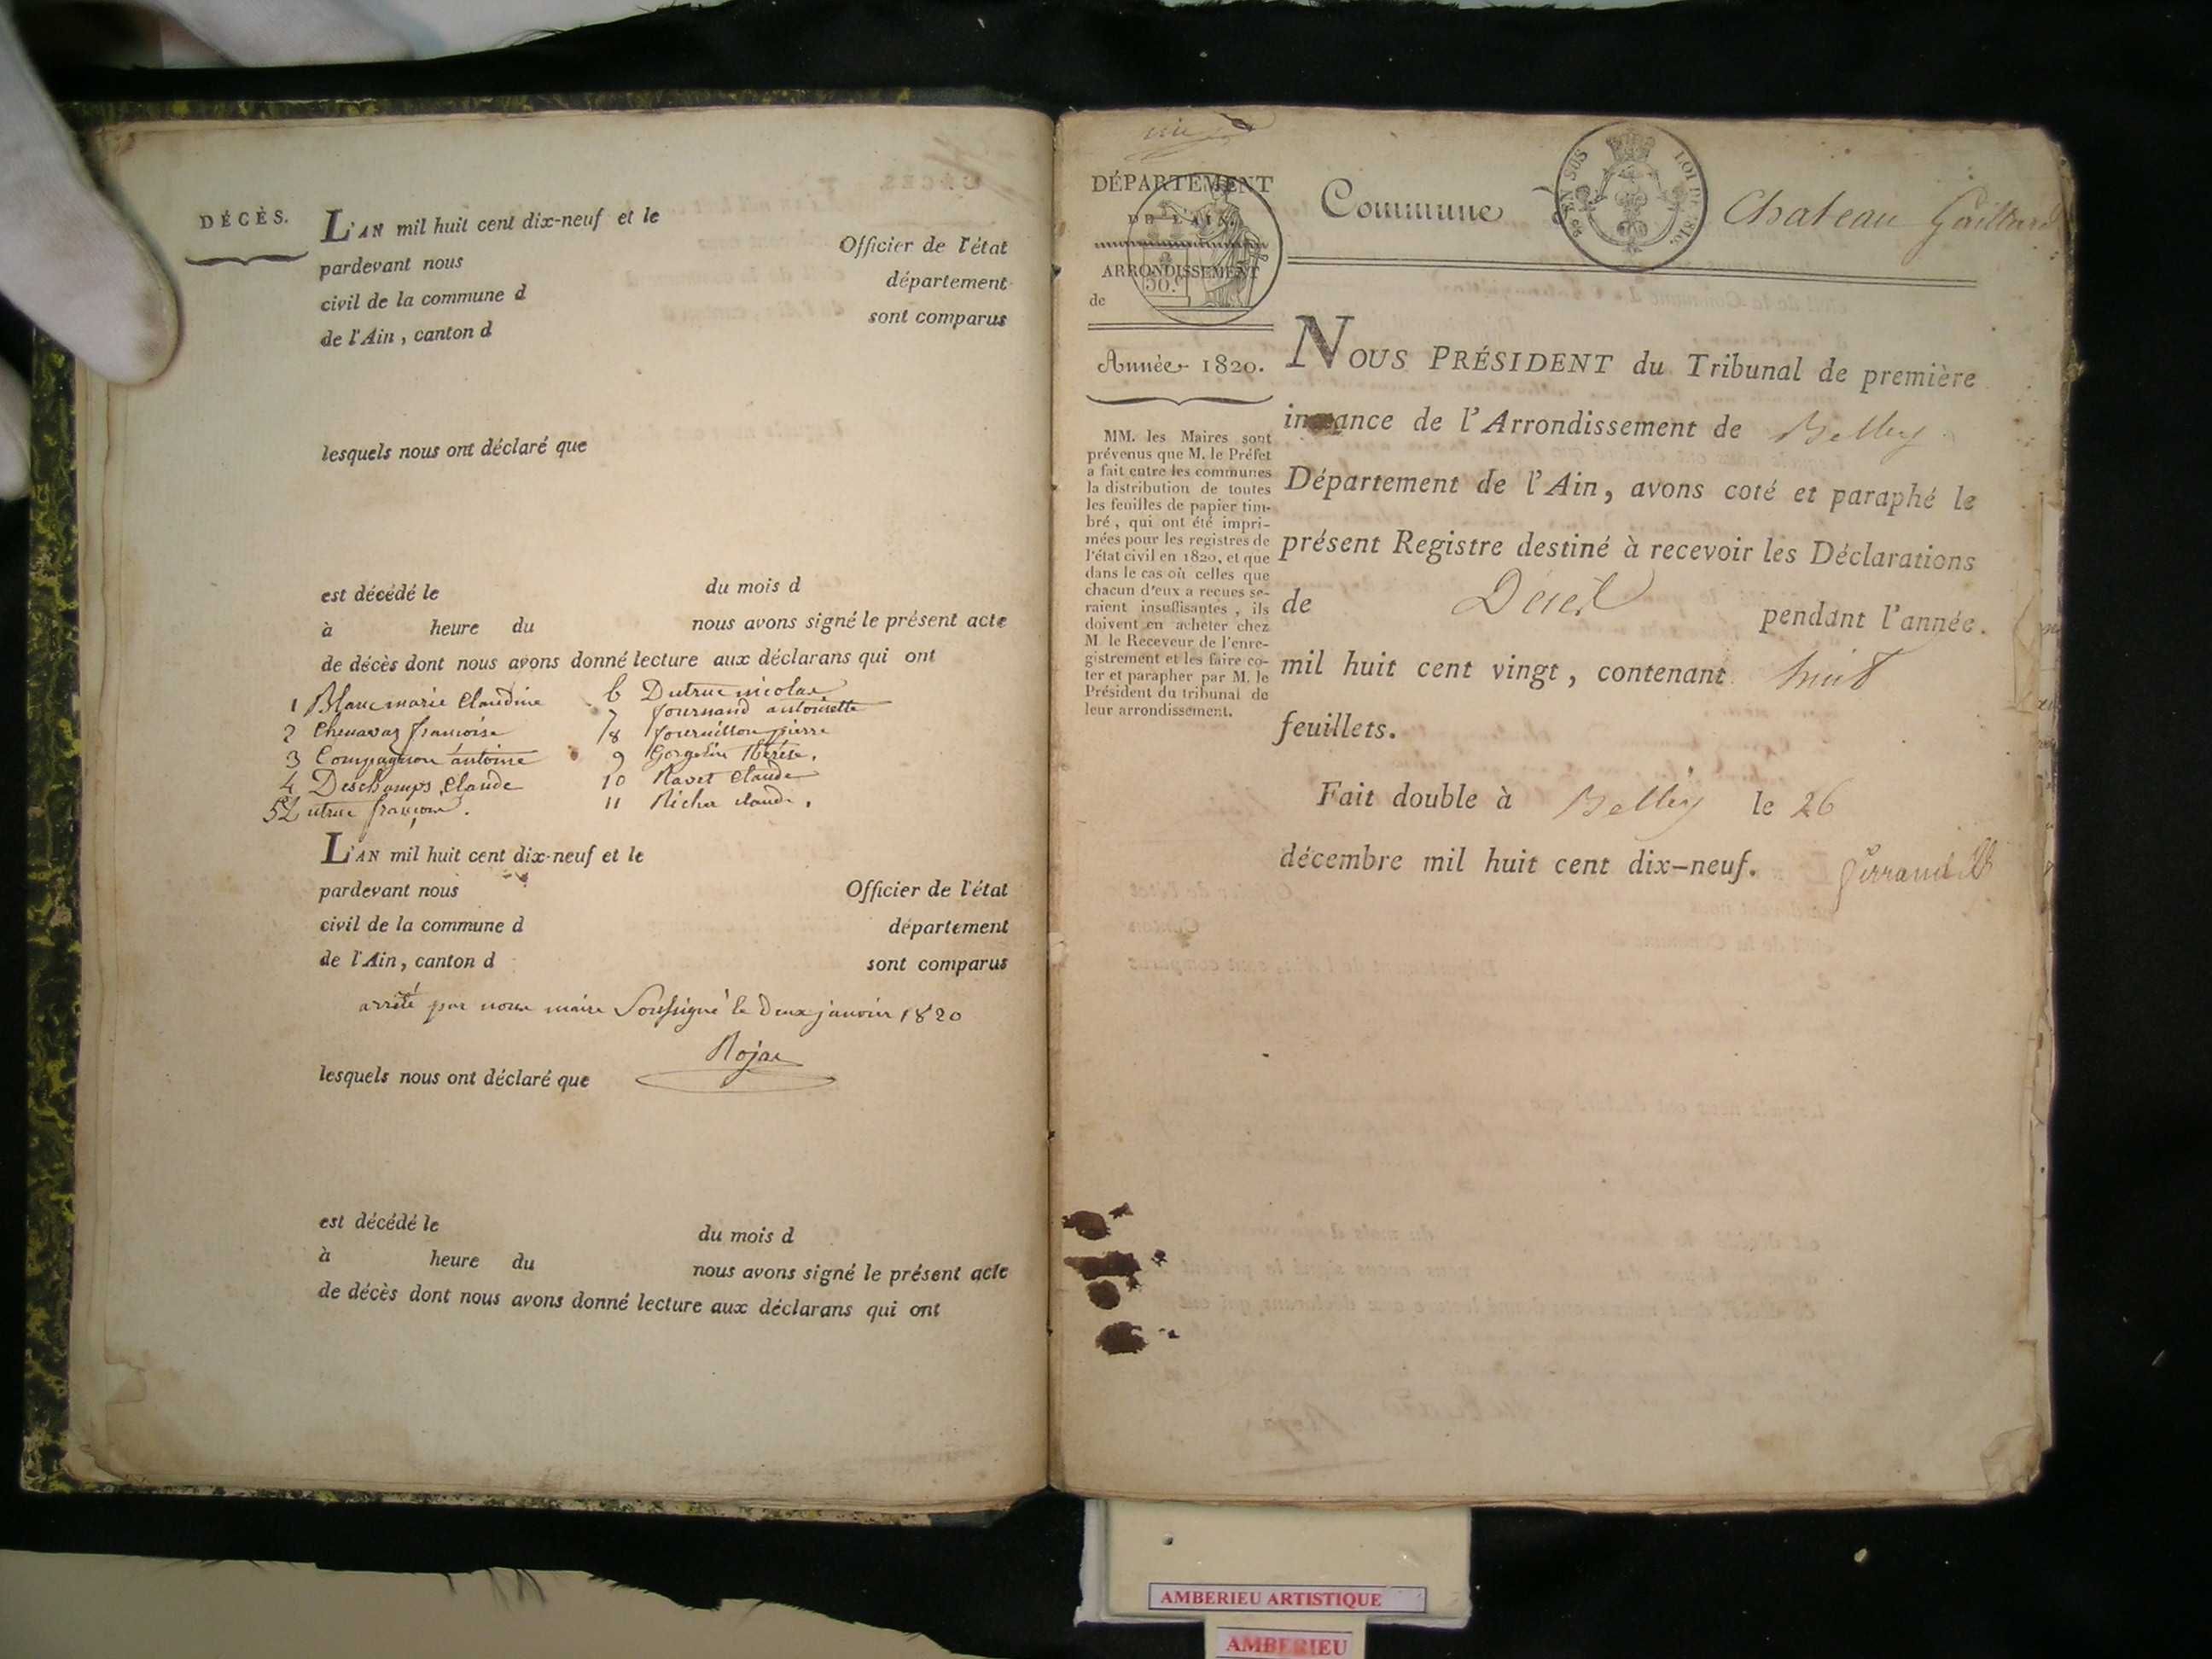 DÉCÈS.
L'AN mil huit cent dix-neuf et le
pardevant nous Officier de l'état
civil de la commune d département
de l'Ain, canton d sont comparus
lesquels nous ont déclaré que
est décédé le du mois d
à heure du nous avons signé le présent acte
de décès dont nous avons donné lecture aux déclarans qui ont
1 Blanc marie Claudine
2 Chenavaz françoise
3 Compagnon antoine
4 Deschamps Claude
5 Dutruc françoise.
6 Dutruc nicolas
7 fournand antoinette
8 fournillon pierre
9 Gorgelin thérèse.
10 Ravet Claude
11 Richer claude.
L'AN mil huit cent dix-neuf et le
pardevant nous Officier de l'état
civil de la commune d département
de l'Ain, canton d sont comparus
arrêté par nous maire Soussigné le Deux janvier 1820
Rojat
lesquels nous ont déclaré que
est décédé le du mois d
à heure du nous avons signé le présent acte
de décès dont nous avons donné lecture aux déclarans qui ont
DÉPARTEMENT
DE L'AIN.
ARRONDISSEMENT
de
Année 1820.
MM. les Maires sont
prévenus que M. le Préfet
a fait entre les communes
la distribution de toutes
les feuilles de papier tim-
bré, qui ont été impri-
mées pour les registres de
l'état civil en 1820, et que
dans le cas où celles que
chacun d'eux a reçues se-
raient insuffisantes, ils
doivent en acheter chez
M. le Receveur de l'enre-
gistrement et les faire co-
ter et parapher par M. le
Président du tribunal de
leur arrondissement.
Commune Chateau Gaillard
EN SUS LOI DE 1816.
NOUS PRÉSIDENT du Tribunal de première
instance de l'Arrondissement de Belley
Département de l'Ain, avons coté et paraphé le
présent Registre destiné à recevoir les Déclarations
de Décès pendant l'année
mil huit cent vingt, contenant huit
feuillets.
Fait double à Belley le 26
décembre mil huit cent dix-neuf.
AMBERIEU ARTISTIQUE
AMBERIEU